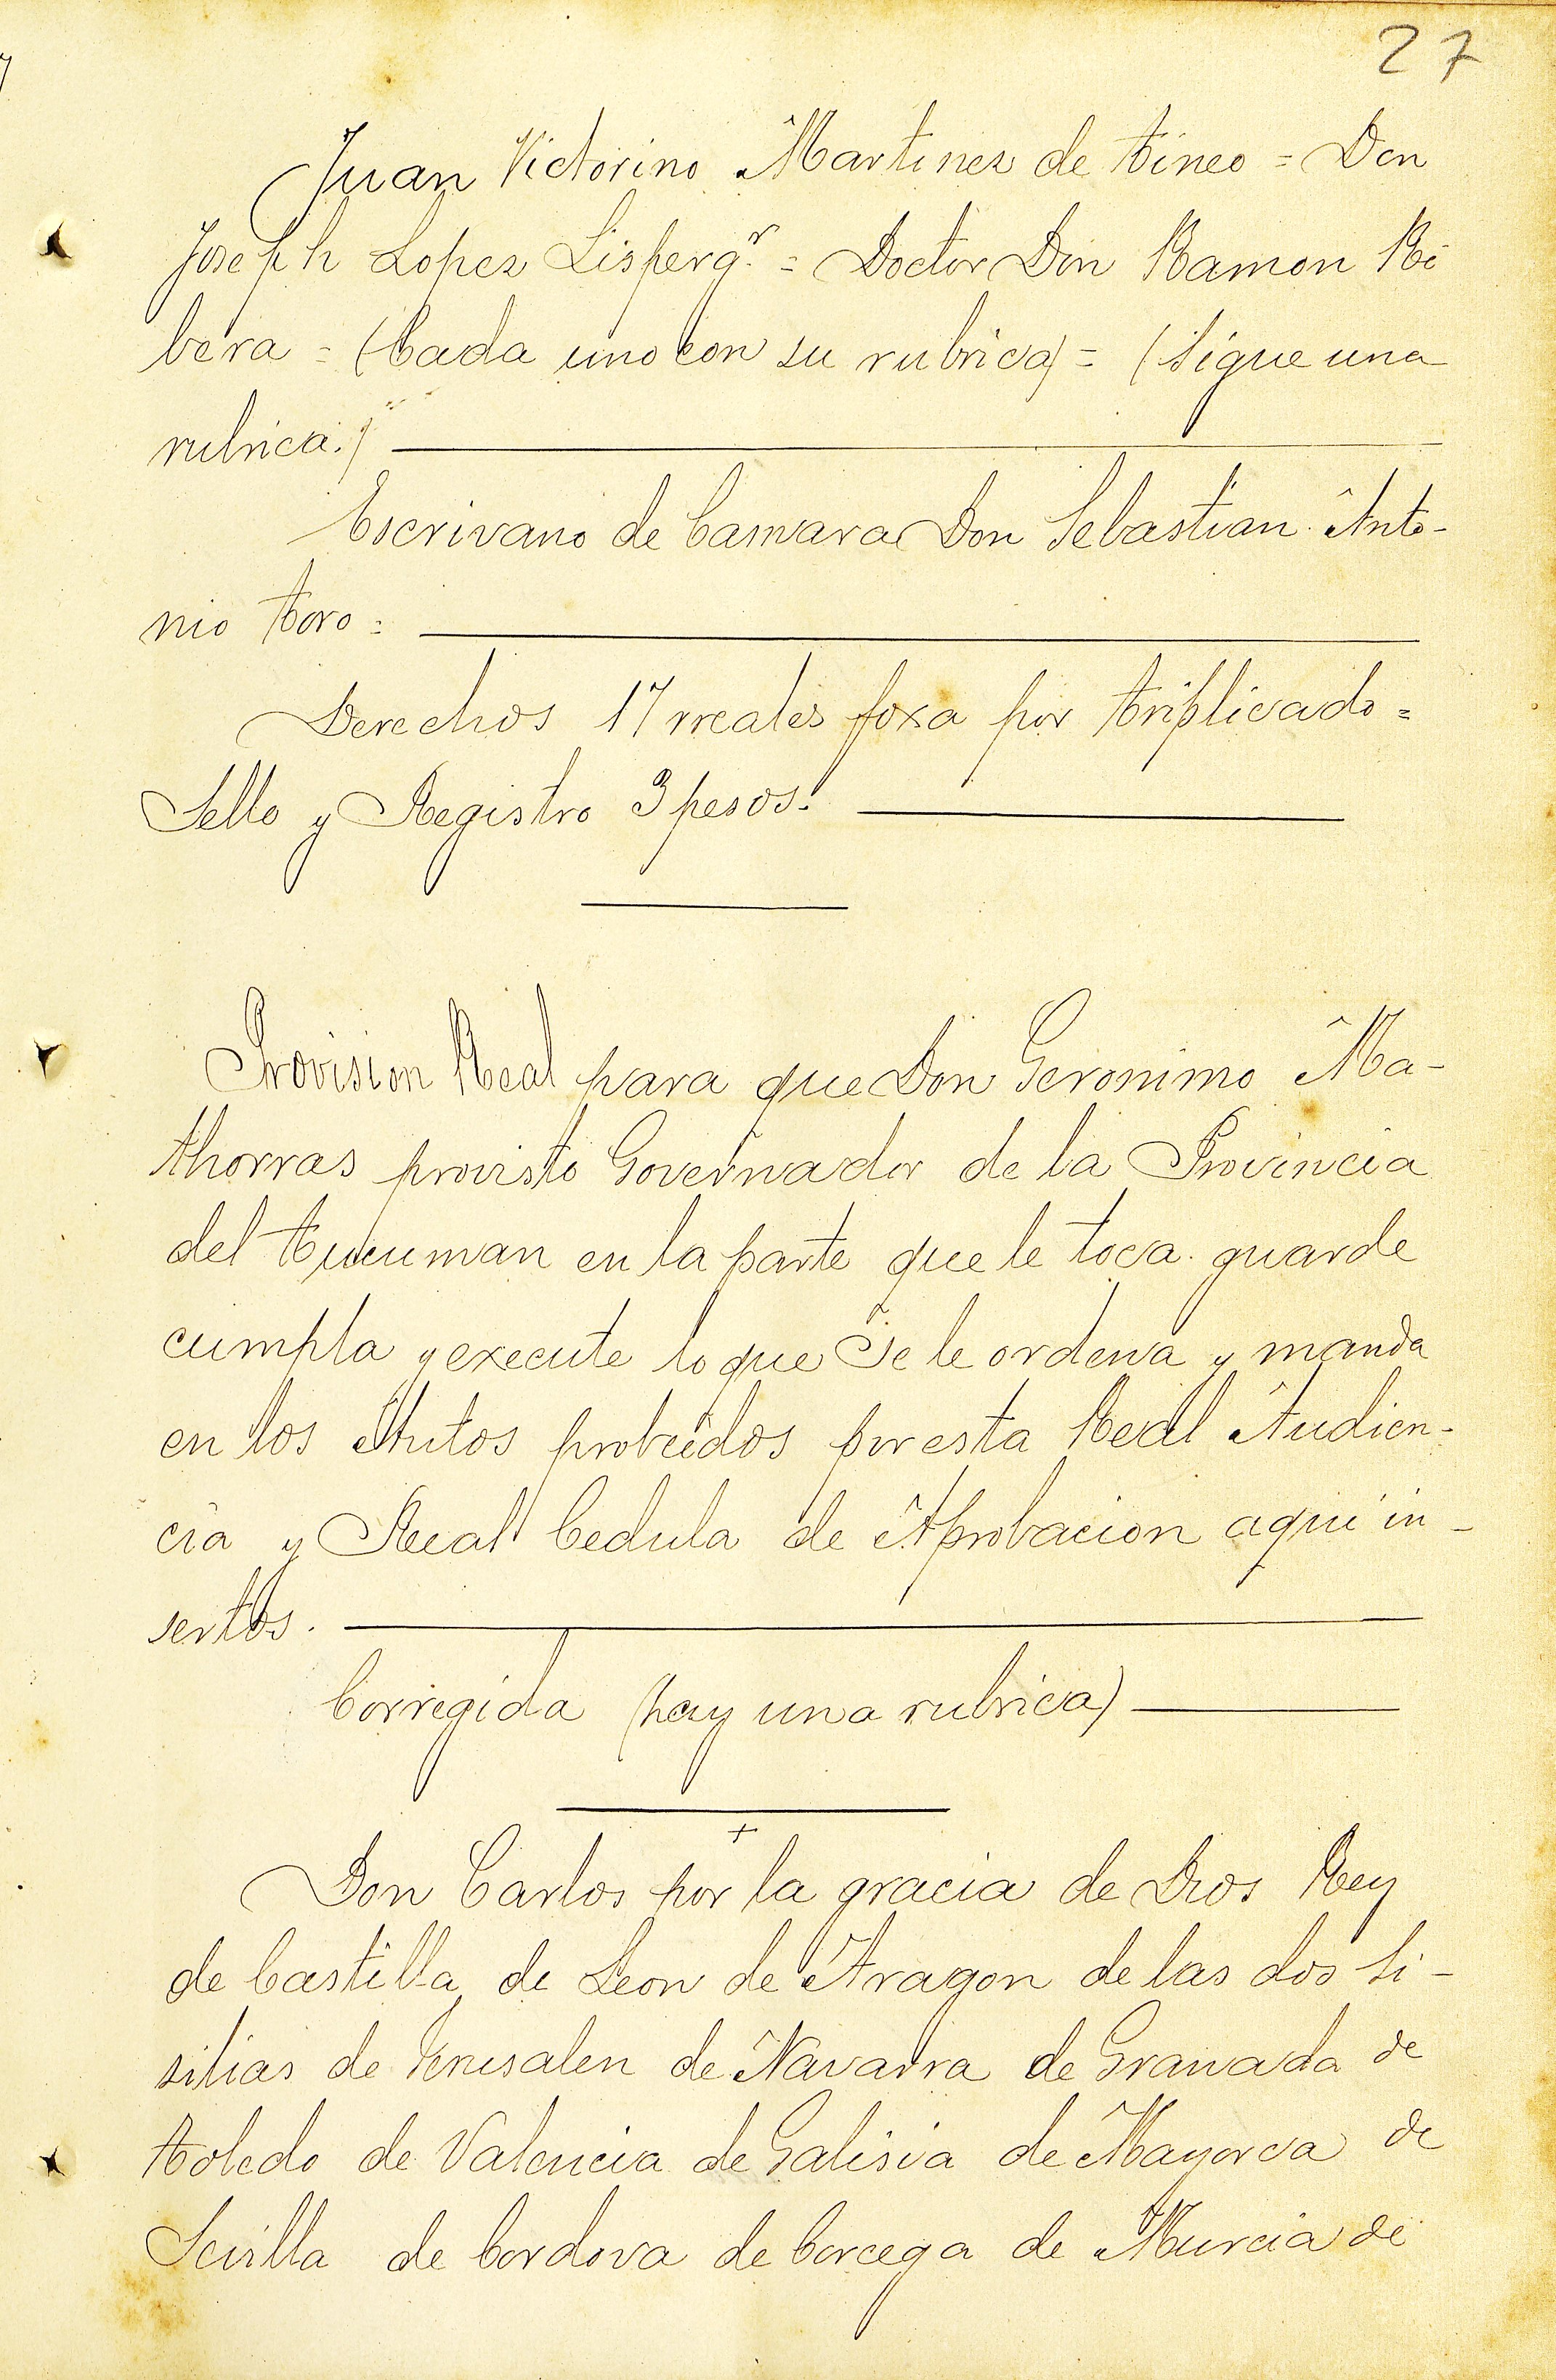 27
Juan Victorino Martinez de Tineo = Don
Joseph Lopez Lisperg.r = Doctor Don Ramon Ri
bera = (Cada uno con su rubrica) = (Sigue una
rubrica.)
Escrivano de Camara Don Sebastian Anto-
nio Toro =
Derechos 17 rreales foxa por triplicado =
Sello y Registro 3 pesos.
Provision Real para que Don Geronimo Ma-
thorras provisto Governador de la Provincia
del Tucuman en la parte que le toca guarde
cumpla y execute lo que se le ordena y manda
en los Autos probeidos por esta Real Audien-
cia y Real Cedula de Aprobacion aqui in-
sertos.
Corregida (hay una rubrica)
+
Don Carlos por la gracia de Dios Rey
de Castilla de Leon de Aragon de las dos Si-
silias de Jerusalen de Navarra de Granada de
Toledo de Valencia de Galisia de Mayorca de
Sevilla de Cordova de Corcega de Murcia de